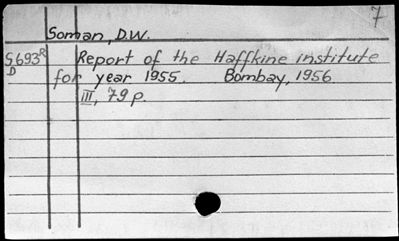 7
Soman, D.W.
S693R Report of the Haffkine institute
D for year 1955. Bombay, 1956
III, 79 p.